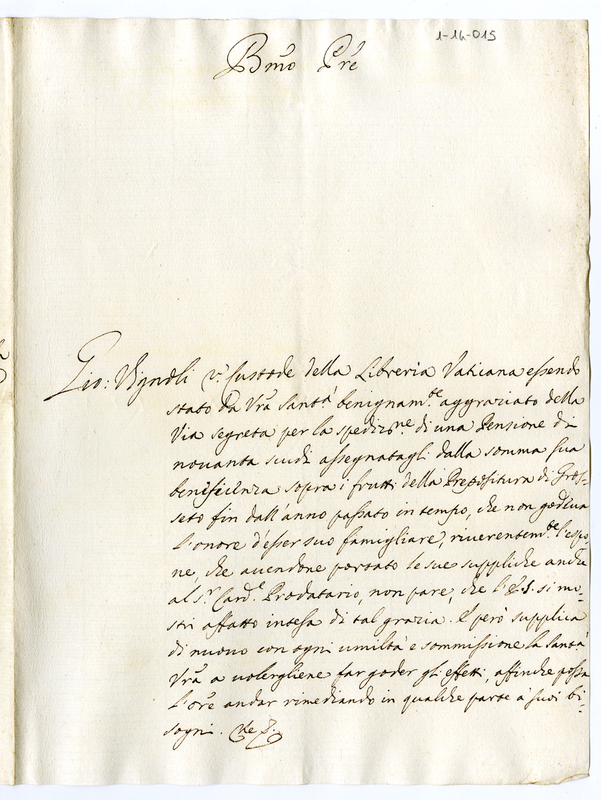 1-16-015
Bmõ Prẽ
Gio: Vignoli V. Custode della Libreria Vaticana essendo
stato da Vrã Santà benignam.te aggraziato della
Via segreta per la spedizio.ne di una Pensione di
novanta scudi assegnatagli dalla somma sua
beneficienza sopra i frutti della Prepositura di Gros-
seto fin dall'anno passato in tempo, che non godeva
l'onore d'esser suo famigliare, riverentem.te l'espo-
ne, che avendone portato le sue suppliche anche
al S.r Card.e Prodatario, non pare, che l'E.S. si mo-
stri affatto intesa di tal grazia. E però supplica
di nuovo con ogni umiltà e sommissione la Santà
Vrã a volergliene far goder gli effetti, affinche possa
l'Orẽ andar rimediando in qualche parte a' suoi bi-
sogni. Che